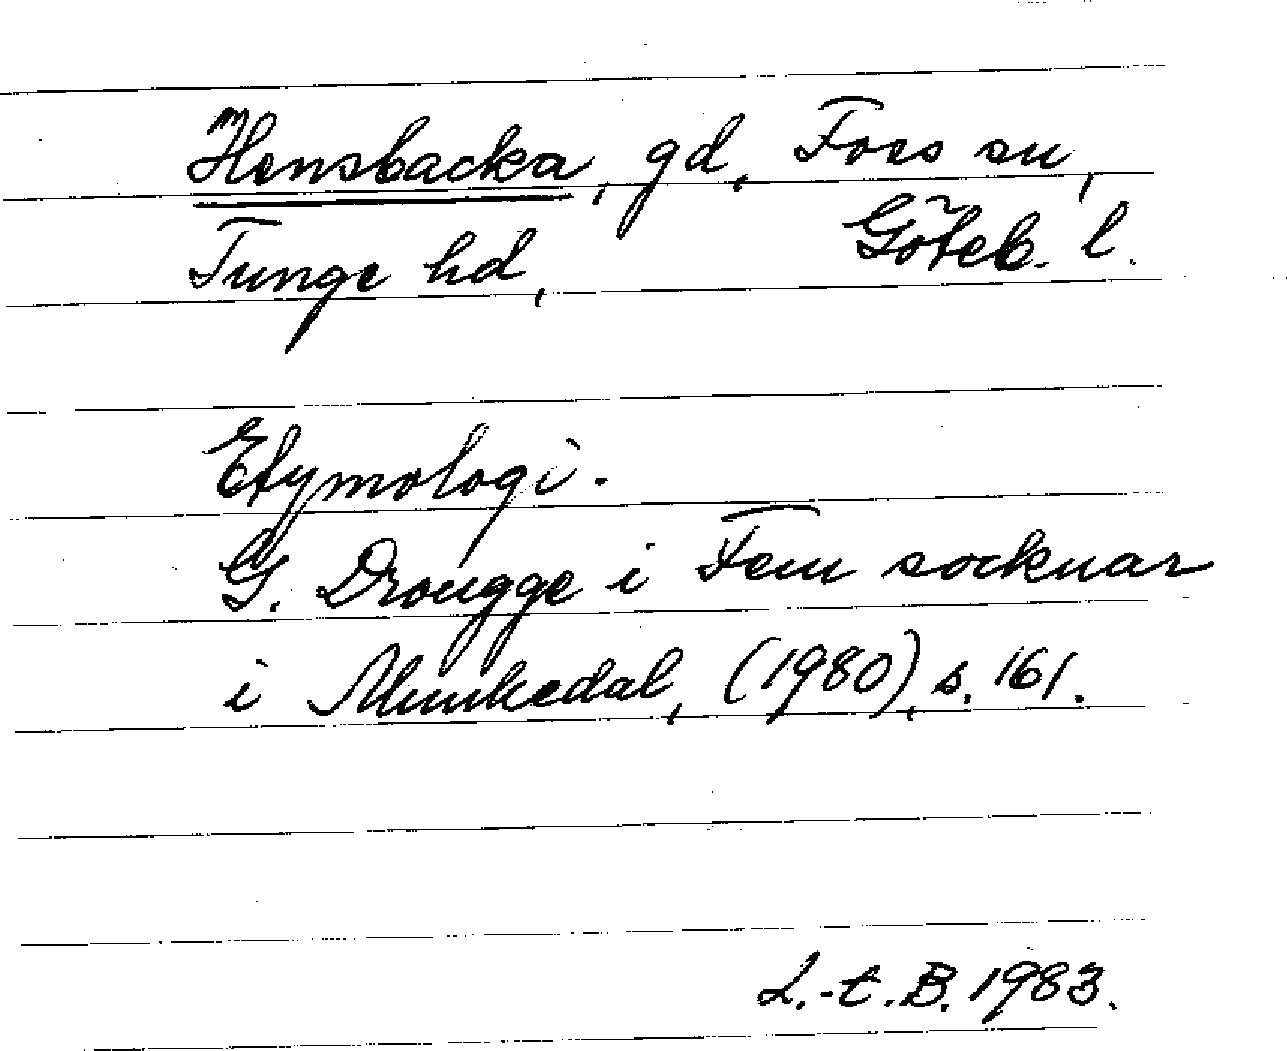 Hensbacka, gd, Foss sn,
Tunge hd, Göteb. l.
Etymologi.
G. Drougge i Fem socknar
i Munkedal, (1980), s. 161.
L.-t.B. 1983.